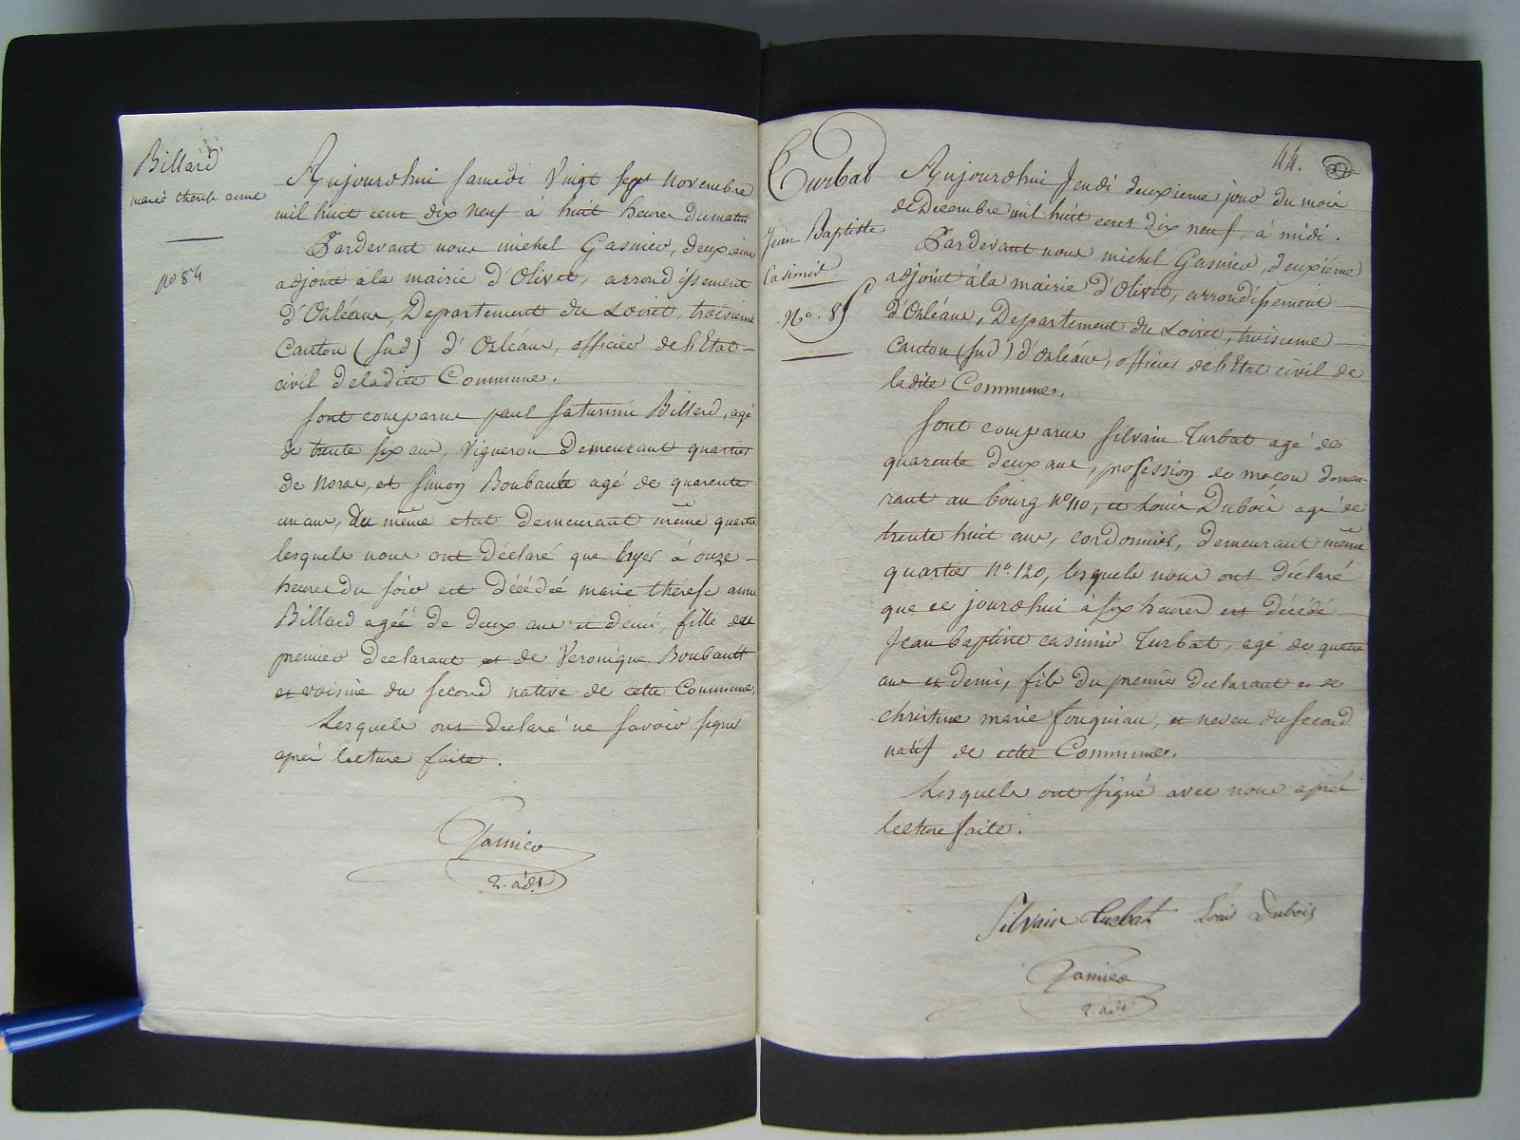 Billard
marie thérèse anne
no 84
Aujourdhui Samedi Vingt Sept Novembre
mil huit cent dix neuf à huit heures du matin
Pardevant nous michel Gasnier, deuxième
adjoint à la mairie d'Olivet, arrondissement
d'Orléans, Departement du Loiret, troisieme
Canton (Sud) d'Orléans, officier de l'Etat
civil de ladite Commune.
Sont comparus paul Saturnin Billard, agé
de trente six ans, Vigneron demeurant quartier
de Noras, et Simon Boubault agé de quarente
un ans, du même etat demeurant même quartier
lesquels nous ont declaré que hyer à onze
heures du soir est décédée marie thérèse anne
Billard agéé de deux ans et demi, fille du
premier declarant et de Veronique Boubault
et voisine du Second native de cette Commune.
Lesquels ont declaré ne Savoir Signer
après lecture faite.
Gasnier
2. adt
44.
Turbat
Jean Baptiste
Casimir
No. 85
Aujourdhui Jeudi deuxieme jour du mois
de Decembre mil huit cent dix neuf à midi.
Pardevant nous michel Gasnier, deuxième
adjoint à la mairie d'Olivet, arrondissement
d'Orléans, Departement du Loiret, troisieme
Canton (Sud) d'orléans, officier de l'Etat civil de
ladite Commune.
Sont comparus Silvain Turbat agé de
quarente deux ans, profession de maçon demeu-
rant au bourg no 110, et Louis Dubois agé de
trente huit ans, cordonnier, demeurant même
quartier no. 120, lesquels nous ont déclaré
que ce jourdhui à six heures est décédé
Jean baptiste casimir Turbat, agé de quatre
ans et demi, fils du premier declarant et de
christine marie fougniau, et neveu du Second
natif de cette Commune.
Lesquels ont Signé avec nous après
lecture faite.
Silvain Turbat Loui Dubois
Gasnier
2. adt